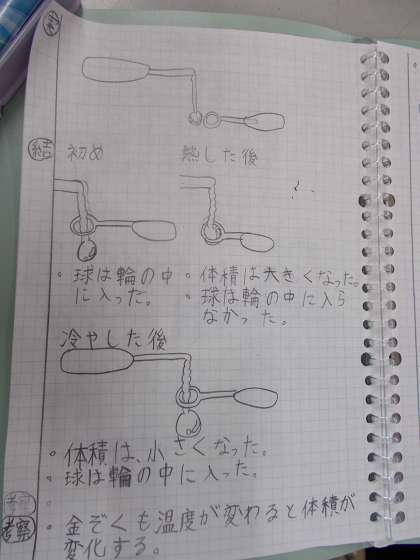 結 初め 熱した後
・球は輪の中
に入った。
・体積は大きくなった。
・球は輪の中に入ら
なかった。
冷やした後
・体積は、小さくなった。
・球は輪の中に入った。
考察
・金ぞくも温度が変わると体積が
変化する。